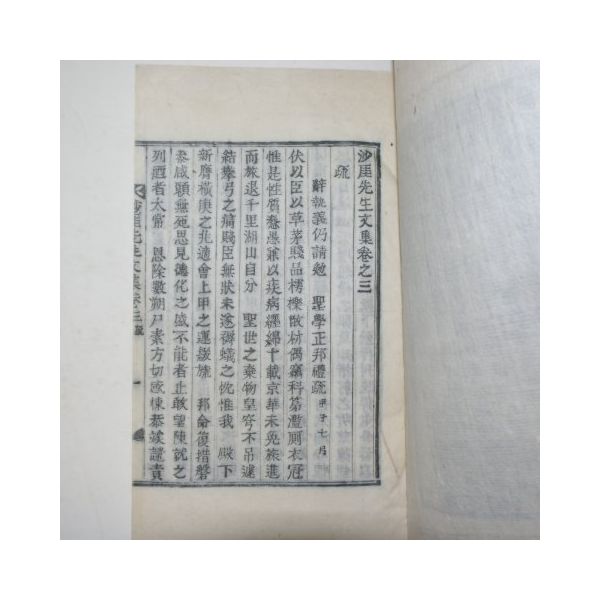 沙厓先生文集卷之三
疏
辭執義仍請勉 聖學正邦禮疏 甲子七月
伏以臣以草茅賤品樗櫟散材偶竊科第濫厠衣冠
惟是性質惷愚兼以疾病纏綿十載京華未免旅進
而旅退千里湖山自分 聖世之棄物皇穹不吊遽
結攀弓之痛賤臣無狀未遂褥蟻之忱惟我 殿下
新膺橫庚之兆適會上甲之運 邦命復措磐
泰咸願無死思見德化之盛不能者止敢望陳就之
列迺者太常 恩除數朔尸素方切愧悚恭竢譴責
沙厓先生文集卷三
一